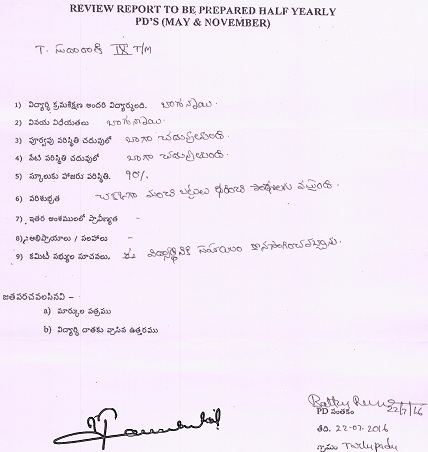 REVIEW REPORT TO BE PREPARED HALF YEARLY
PD'S (MAY & NOVEMBER)
T. IX T/M
1) విద్యార్ధి క్రమశిక్షణ అందరి విద్యార్ధులది. బాగున్నాయి.
2) వినయ విధేయతలు బాగున్నాయి.
3) పూర్వపు పరిస్థితి చదువులో బాగా చదువుతుంది.
4) నేటి పరిస్థితి చదువులో బాగా చదువుతుంది.
5) స్కూలుకు హాజరు పరిస్థితి. 90%
6) పరిశుభ్రత చక్కగా మంచి బట్టలు ధరించి వస్తుంది.
7) ఇతర అంశములలో ప్రావీణ్యత -
8) అభిప్రాయాలు / సలహాలు -
9) కమిటీ సభ్యుల సూచనలు, ఈ విద్యార్థినికి సహాయం
జతపరచవలసినవి –
a) మార్కుల పత్రము
b) విద్యార్ధి దాతకు వ్రాసిన ఉత్తరము
22/7/16
PD సంతకం
తేది. 22-07-2016
గ్రామం Tarlupadu